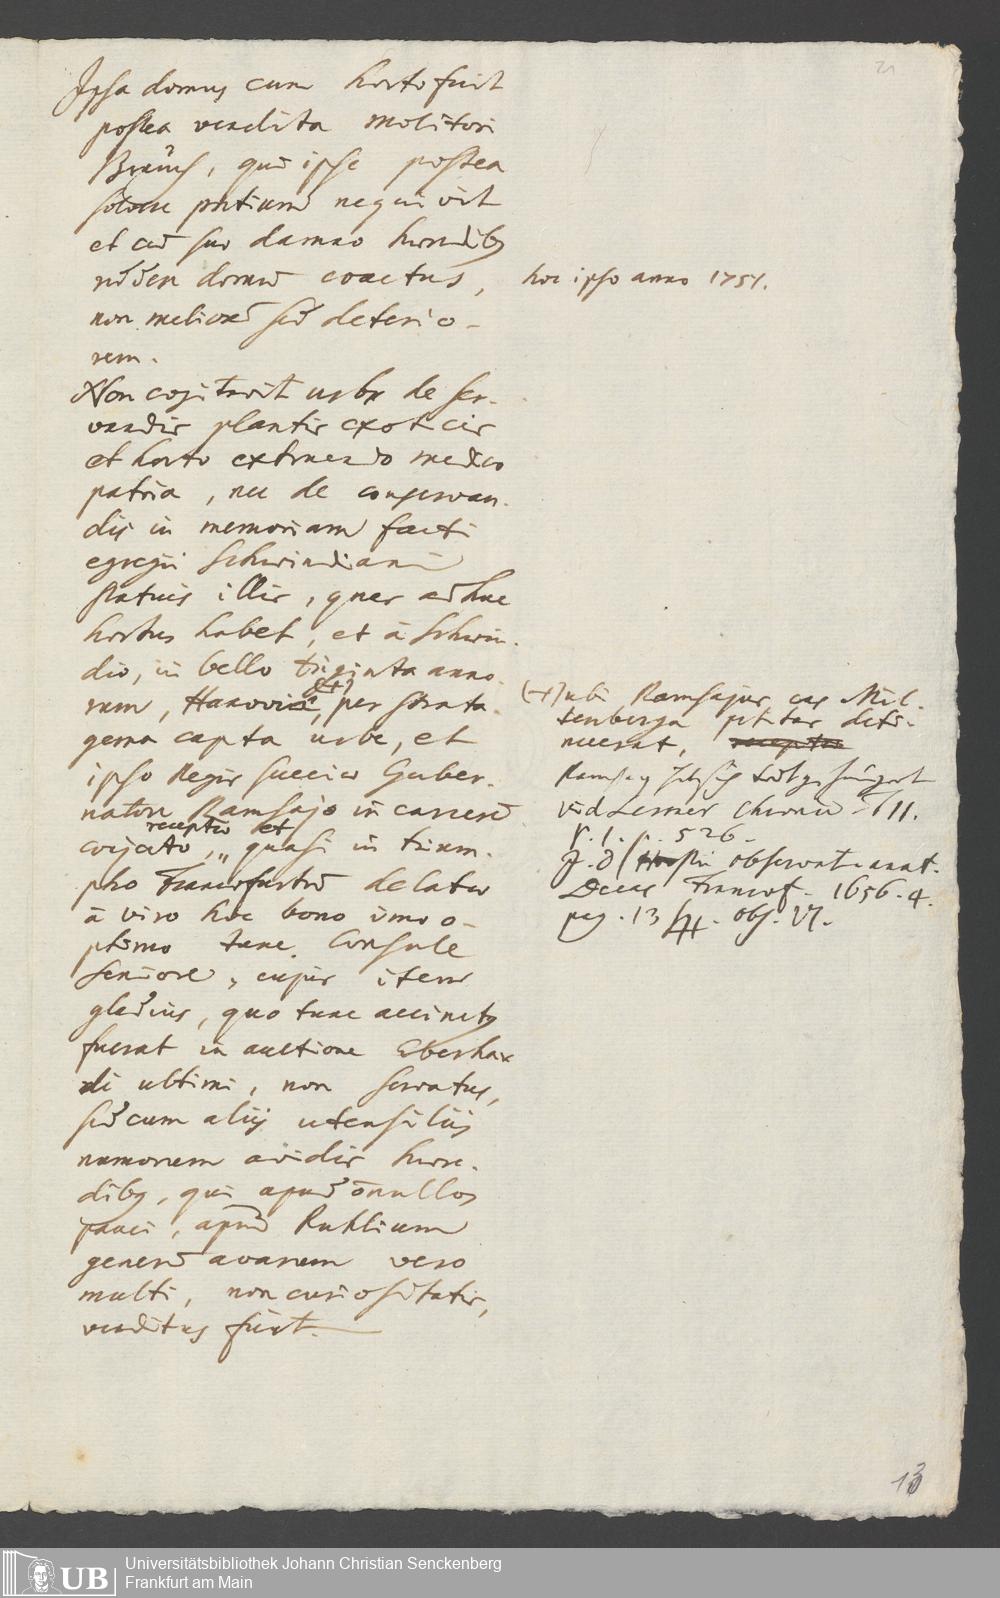 21
Ipsa domus cum horto fuit
postea vendita Molitori
Bräuß, qui ipse postea
solvere pretium nequivit
et cum suo damno
domum coactus,
non meliorem sed deterio-
rem.
Non cogitavit urbs de ser-
vandis plantis exoticis
et horto extruendo medico
patria, nec de conservan-
dis in memoriam facti
egregii Schwindiani
statuis illis, quas adhuc
hortus habet, et à Schwin-
dio, in bello triginta anno-
rum, Hanoviæ, (+) per strata-
gema capta urbe, et
ipso Regis Sueciæ Guber-
natore Ramsajo in carcerem
conjecto, receptis et quasi in trium-
pho Francofurtum delatis
à viro hoc bono imo o-
ptimo tunc Consule
Seniore, cujus item
gladius, quo tunc accinctus
fuerat in auctione Eberhar
di ultimi, non servatus,
sed cum alijs utensiliis
nummorum avidis hære-
dibus, qui apud nonnullos
pauci, apud Ruhlium
generum avarum vero
multi, non curiositatis,
venditus fuit.
hoc ipso anno 1751.
(+) ubi Ramsajus eas Mil-
tenberga petitas deti-
nuerat,
Ramsay
vid Lersner Chronic. T II.
p. 526.
observat. anat.
Decas Francof. 1656. 4.
pag. 13 obs. VI.
13
UB
Universitätsbibliothek Johann Christian Senckenberg
Frankfurt am Main